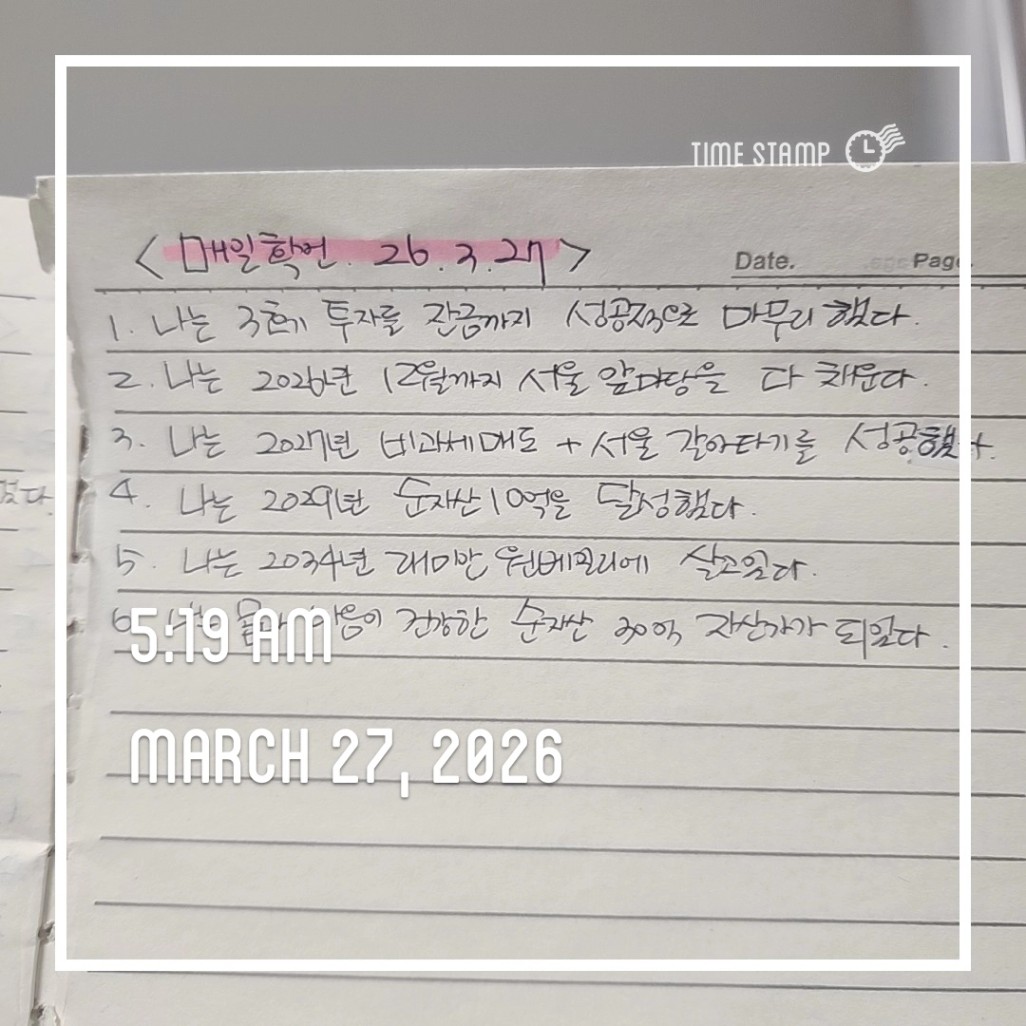 TIME STAMP
< 매일확언. 26.3.27 >
Date.
Page
1. 나는 3호기 투자를 잔금까지 성공적으로 마무리했다.
2. 나는 2026년 12월까지 서울 앞마당을 다 채운다.
3. 나는 2027년 비과세매도 + 서울 갈아타기를 성공했다.
4. 나는 2029년 순자산 10억을 달성했다.
5. 나는 2034년 래미안 원베일리에 살고있다.
6. 마음이 건강한 순자산 30억 자산가가 되었다.
5:19 AM
MARCH 27, 2026